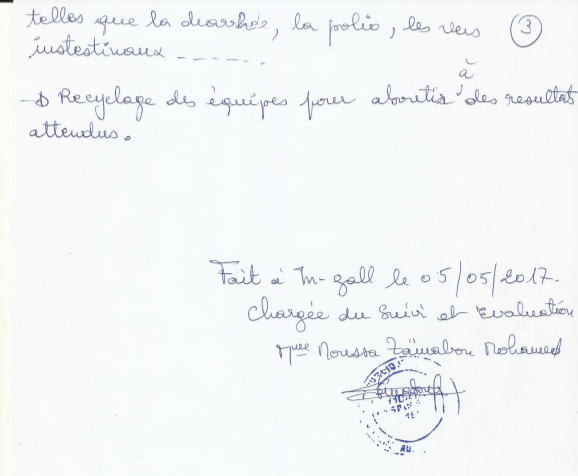 telles que la diarrhée, la polio, les vers ③
instestinaux -------
à
→ Recyclage des équipes pour aboutir des resultats
attendus.
Fait à In-gall le 05/05/2017.
Chargée du Suivi et Evaluation
Mme Moussa Zaïnabou Mohamed